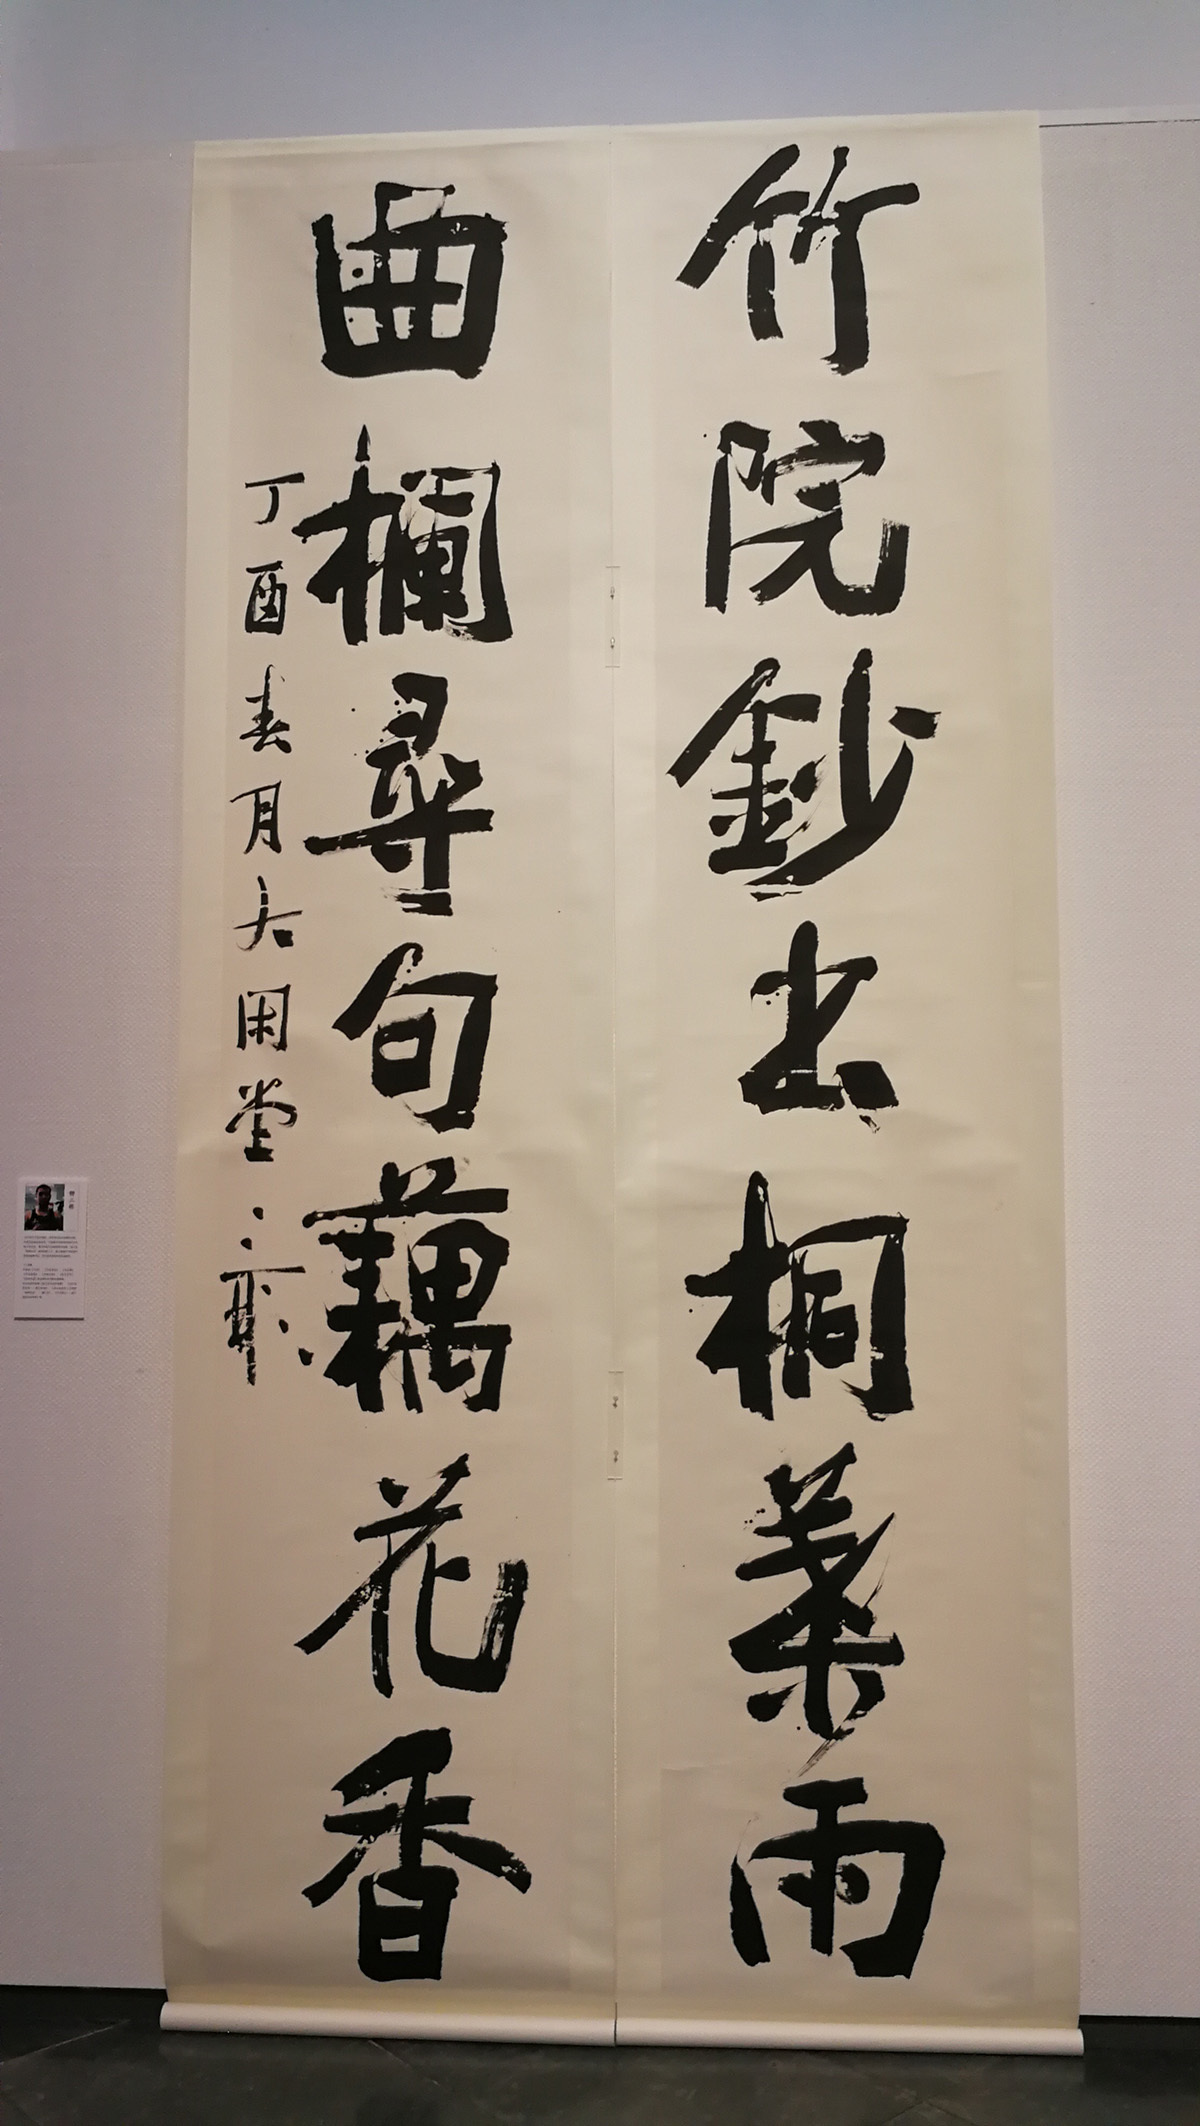 竹院鈔書桐葉雨
曲欄尋句藕花香
丁酉春月大堂